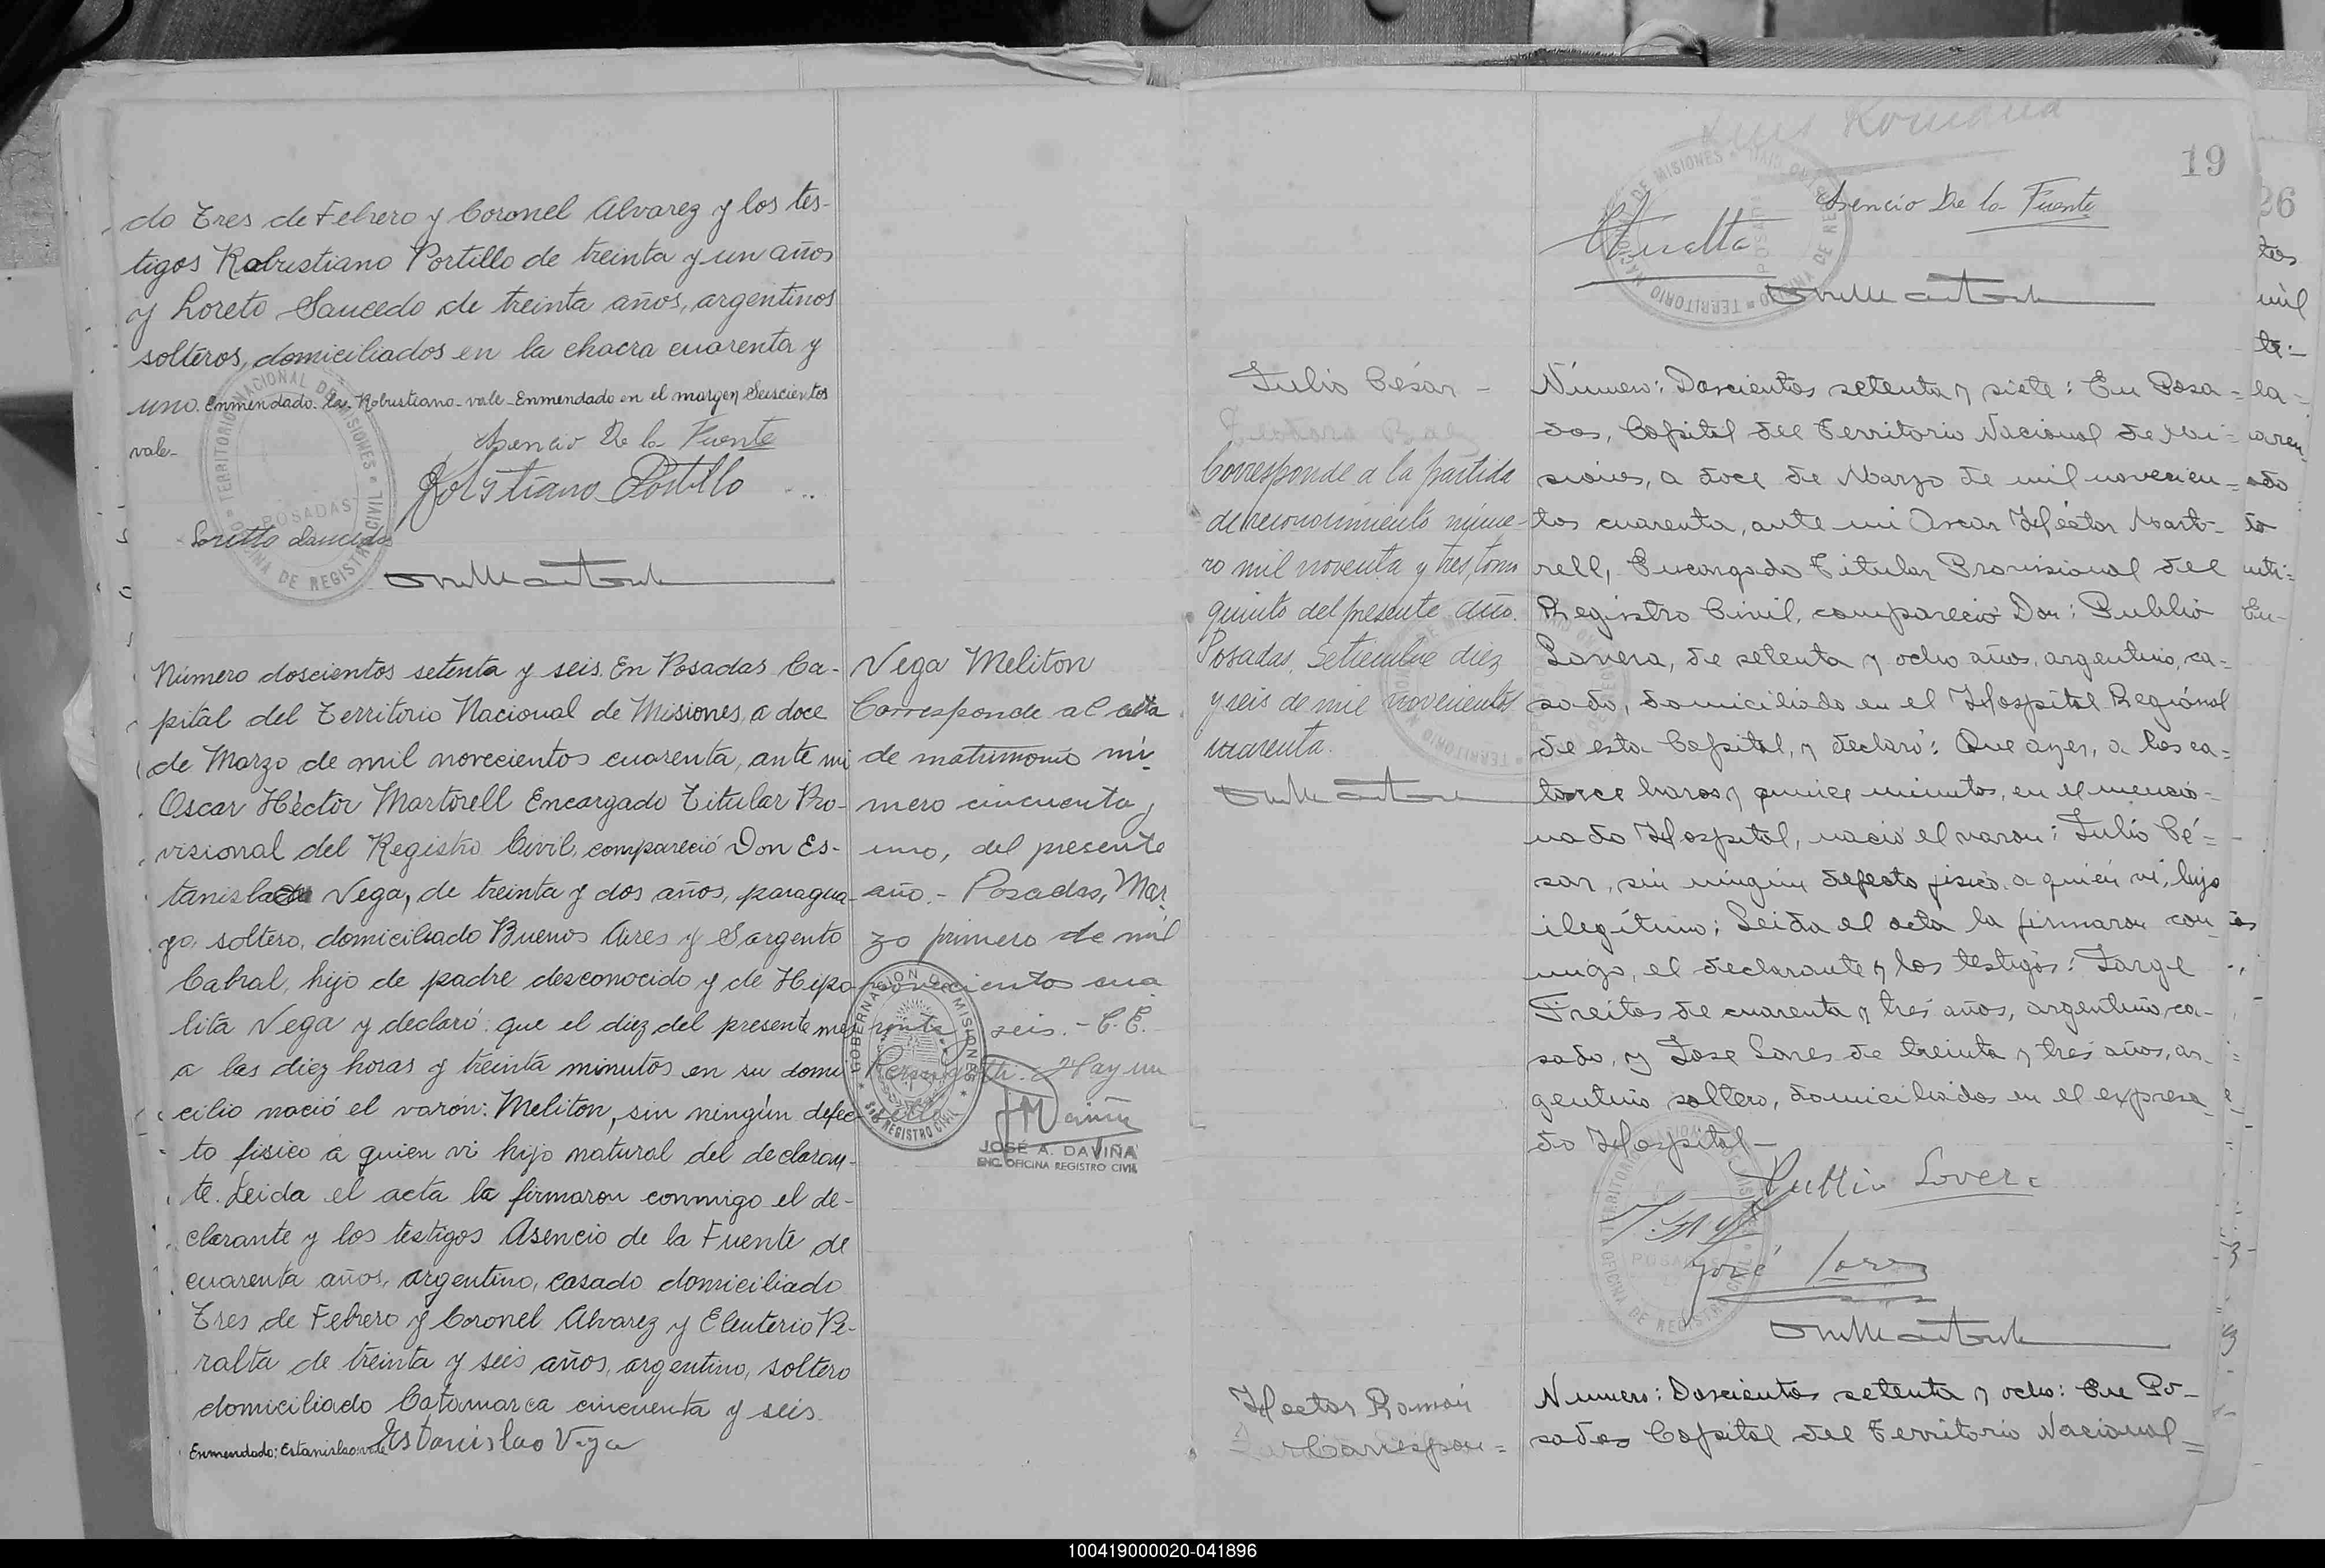 do Tres de Febrero y Coronel Alvarez y los tes-
tigos Robustiano Portillo de treinta y un años
y Loreto Saucedo de treinta años, argentinos
solteros, domiciliados en la chacra cuarenta y
uno. Enmendado. La. Robustiano- vale- Enmendado en el margen Seiscientos
vale-
Asencio De la Fuente
Robstiano Portillo
Loretto Saucedo
TERRITORIO NACIONAL DE MISIONES
POSADAS
OFICINA DE REGISTRO CIVIL
Número doscientos setenta y seis. En Posadas Ca-
pital del Territorio Nacional de Misiones, a doce
de Marzo de mil novecientos cuarenta, ante mi
Oscar Héctor Martorell Encargado Titular Pro-
visional del Registro Civil, compareció Don Es-
tanislao Vega, de treinta y dos años, paragua-
yo, soltero, domiciliado Buenos Aires y Sargento
Cabral, hijo de padre desconocido y de Hipo-
lita Vega y declaró: que el diez del presente mes
a las diez horas y treinta minutos en su domi-
cilio nació el varón: Meliton, sin ningún defec-
to fisico a quien vi hijo natural del declaran-
te. Leida el acta la firmaron conmigo el de-
clarante y los testigos Asencio de la Fuente de
cuarenta años, argentino, casado domiciliado
Tres de Febrero y Coronel Alvarez y Eleuterio Pe-
ralta de treinta y seis años, argentino, soltero
domiciliado Catamarca cincuenta y seis.
Enmendado: Estanislao: vale
Estanislao Vega
Vega Meliton
Corresponde al acta
de matrimonio nú-
mero cincuenta y
uno, del presente
año.- Posadas, Mar-
zo primero de mil
novecientos cua-
renta y seis.- C. E.
Hay un
sello
GOBERNACION DE MISIONES
REGISTRO CIVIL
JOSÉ A. DAVIÑA
ENC. OFICINA REGISTRO CIVIL
19
Asencio De la Fuente
TERRITORIO NACIONAL DE MISIONES
POSADAS
Julio César -
Corresponde a la partida
de reconocimiento núme-
ro mil noventa y tres, tomo
quinto del presente año.
Posadas, Setiembre diez
y seis de mil novecientos
cuarenta.
Número: Doscientos setenta y siete: En Posa-
das, Capital del Territorio Nacional de Mi-
siones, a doce de Marzo de mil novecien-
tos cuarenta, ante mi Oscar Héctor Marto-
rell, Encargado Titular Provisional del
Registro Civil, compareció Don: Publio
Lovera, de setenta y ocho años, argentino, ca-
sado, domiciliado en el Hospital Regional
de esta Capital, y declaró: Que ayer, a las ca-
torce horas y quince minutos, en el mencio-
nado Hospital, nació el varon: Julio Cé-
sar, sin ningún defecto fisico a quién vi, hijo
ilegítimo; Leida el acta la firmaron con-
migo, el declarante y los testigos: Jorge
Freitas de cuarenta y tres años, argentino, ca-
sado, y Jose Lores de treinta y tres años, ar-
gentino soltero, domiciliados en el expresa-
do Hospital-
Publio Lovera
José
TERRITORIO NACIONAL DE MISIONES
POSADAS
OFICINA DE REGISTRO CIVIL
Hector Román
Correspon=
Numero: Doscientos setenta y ocho: En Po-
sadas Capital del Territorio Nacional
26
tos
mil
100419000020-041896